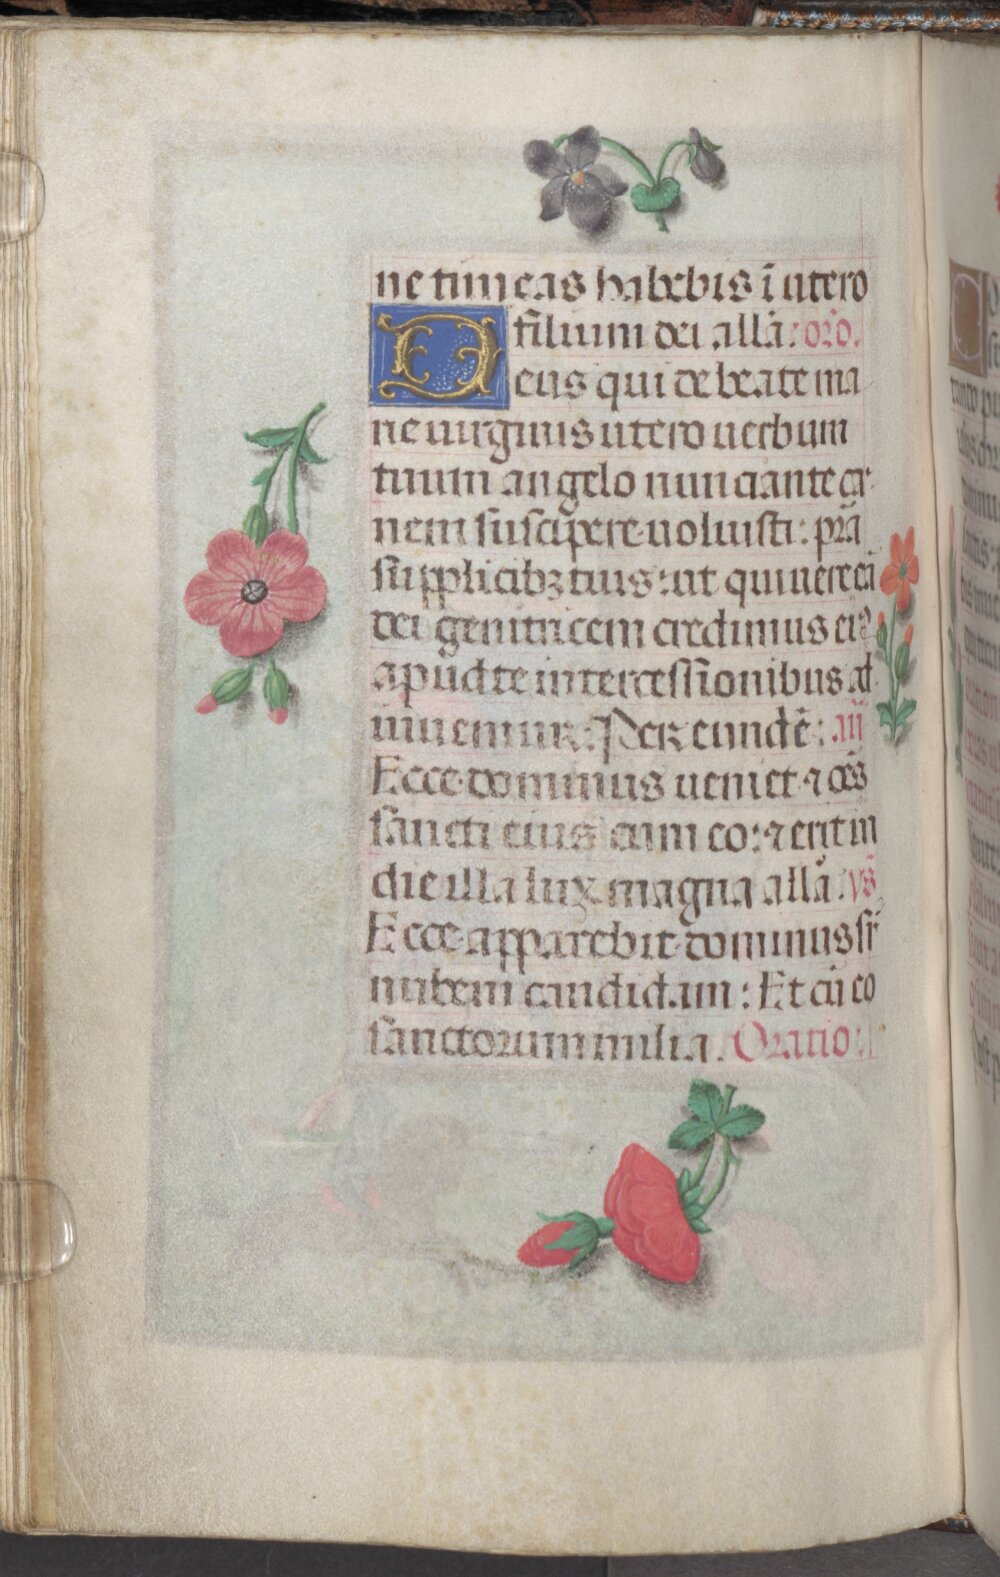 ne timeas habebis ī utero
filium dei allā: orō.
Deus qui de beate ma
rie uirginis utero uerbum
tuum angelo nunciante car
nem suscipere uoluisti: prā
supplicibꝫ tuis: ut qui uere eā
dei genitricem credimus eiꝰ
apud te intercessionibus ad
iuuemur: Per eundē: an̄
Ecce dominus ueniet ⁊ oēs
sancti eius cum eo: ⁊ erit in
die illa lux magna allā. vs̄
Ecce apparebit dominus sr̄
nubem candidam: Et cū eo
sanctorum milia. Oratio: